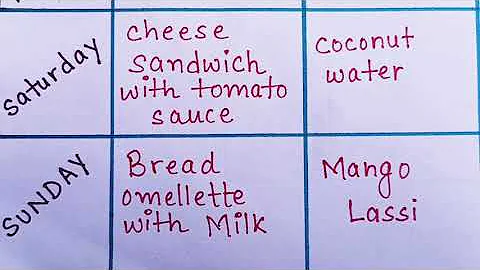 Saturday
cheese
Sandwich
with tomato
sauce
Coconut
water
SUNDAY
Bread
omellette
with Milk
Mango
Lassi